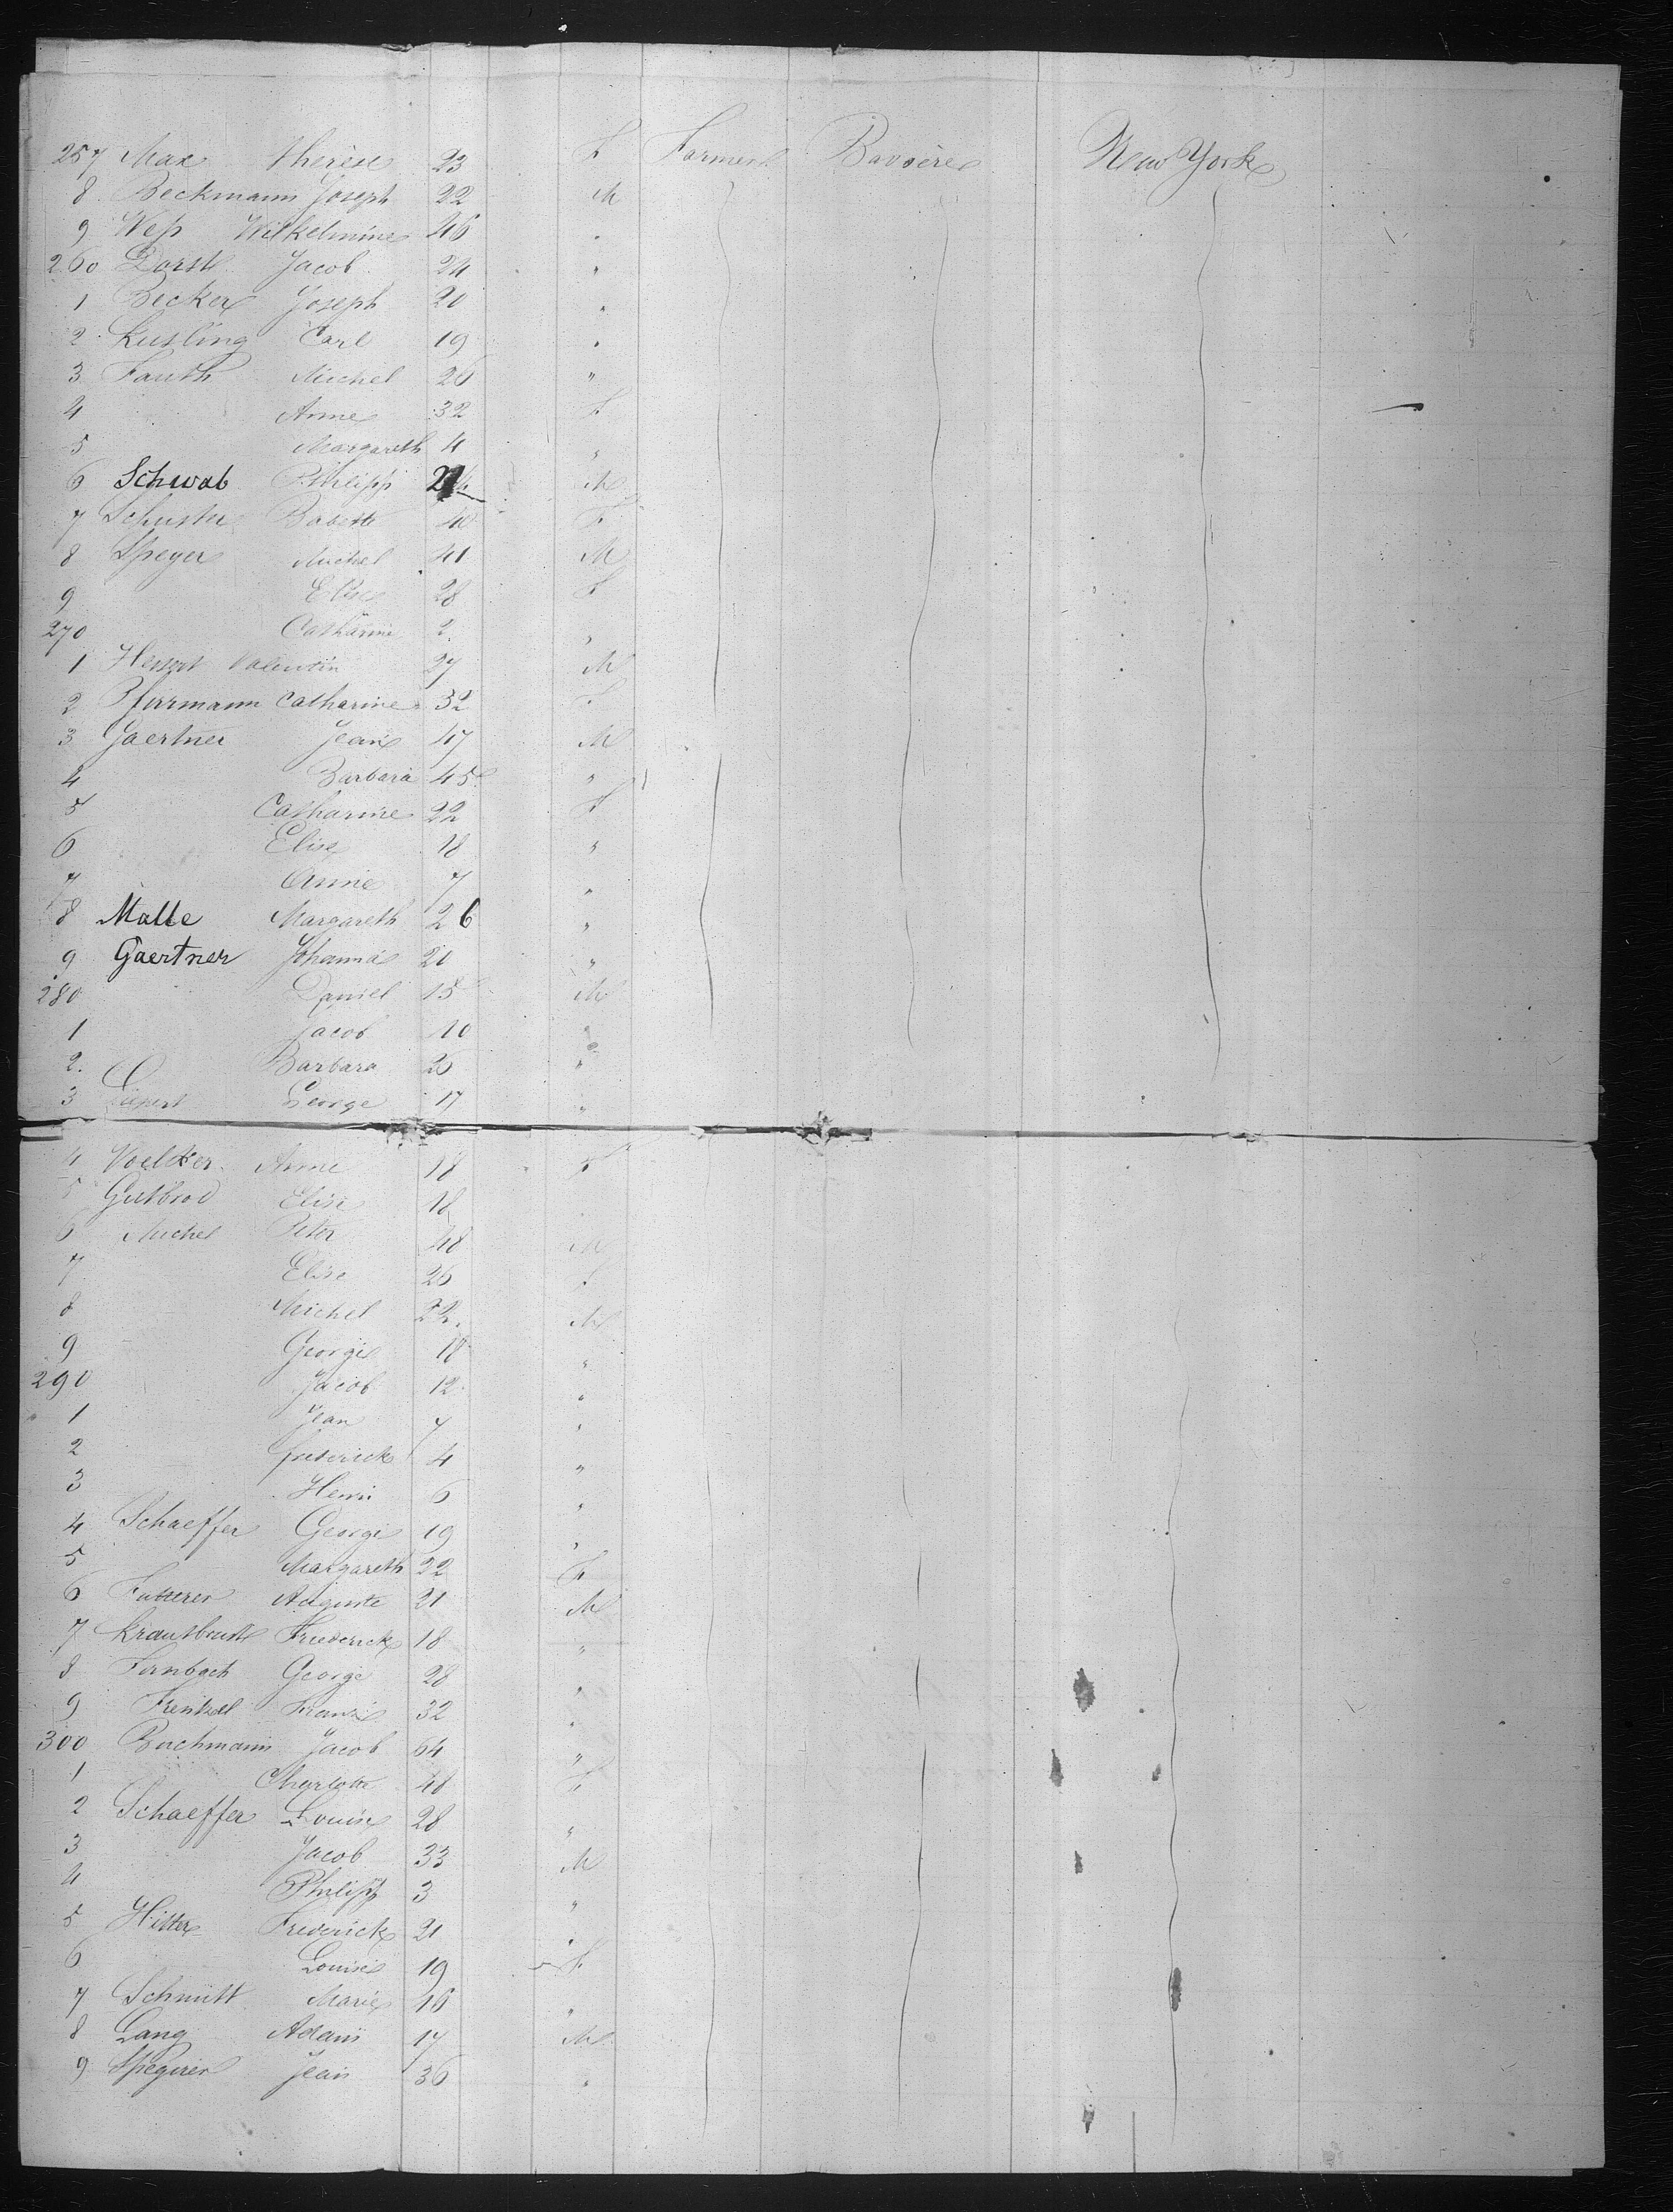 257 Max Therese 23 F Farmer Bavière New York
8 Beckmann Joseph 22 M
9 Weß Wilhelmine 46 "
260 Dorst Jacob 24 "
1 Becker Joseph 20 "
2 Kusling Carl 19 "
3 Fauth Michel 26 "
4 Anne 32 F
5 Margareth 4 "
6 Schwab Philipp M
7 Schuster Babette 40 F
8 Speyer Michel 41 M
9 Elise 28 F
270 Catharine 2 "
1 Valentin 27 M
2 Pfirrmann Catharine 32 F
3 Gaertner Jean 47 M
4 Barbara 45 "
5 Catharine 22 F
6 Elise 18 "
7 Anne 7 "
8 Malle Margareth 26 "
9 Gaertner Johanna 20 "
280 Daniel 15 M
1 Jacob 10 "
2. Barbara 26 "
3 George 17 "
4 Voelker Anne 18 F
5 Gutbrod Elise 18
6 Michel Peter 48 M
7 Elise 26 F
8 Michel 22. M
9 George 18 "
290 Jacob 12 "
1 Jean 7 "
2 frederick 4 "
3 Henri 6 "
4 Schaeffer George 19 "
5 Margareth 22 F
6 Futterer Auguste 21 M
7 Friederick 18 "
8 Fernbach George 28 "
9 Frenkel Franz 32 "
300 Bachmann Jacob 64 "
1 Charlotte 48 F
2 Schaeffer Louise 28 "
3 Jacob 33 M
4 Philipp 3 "
5 Hitter Frederick 21 "
6 Louise 19 F
7 Schmitt Marie 16 "
8 Lang Adam 17 M
9 Jean 36 "